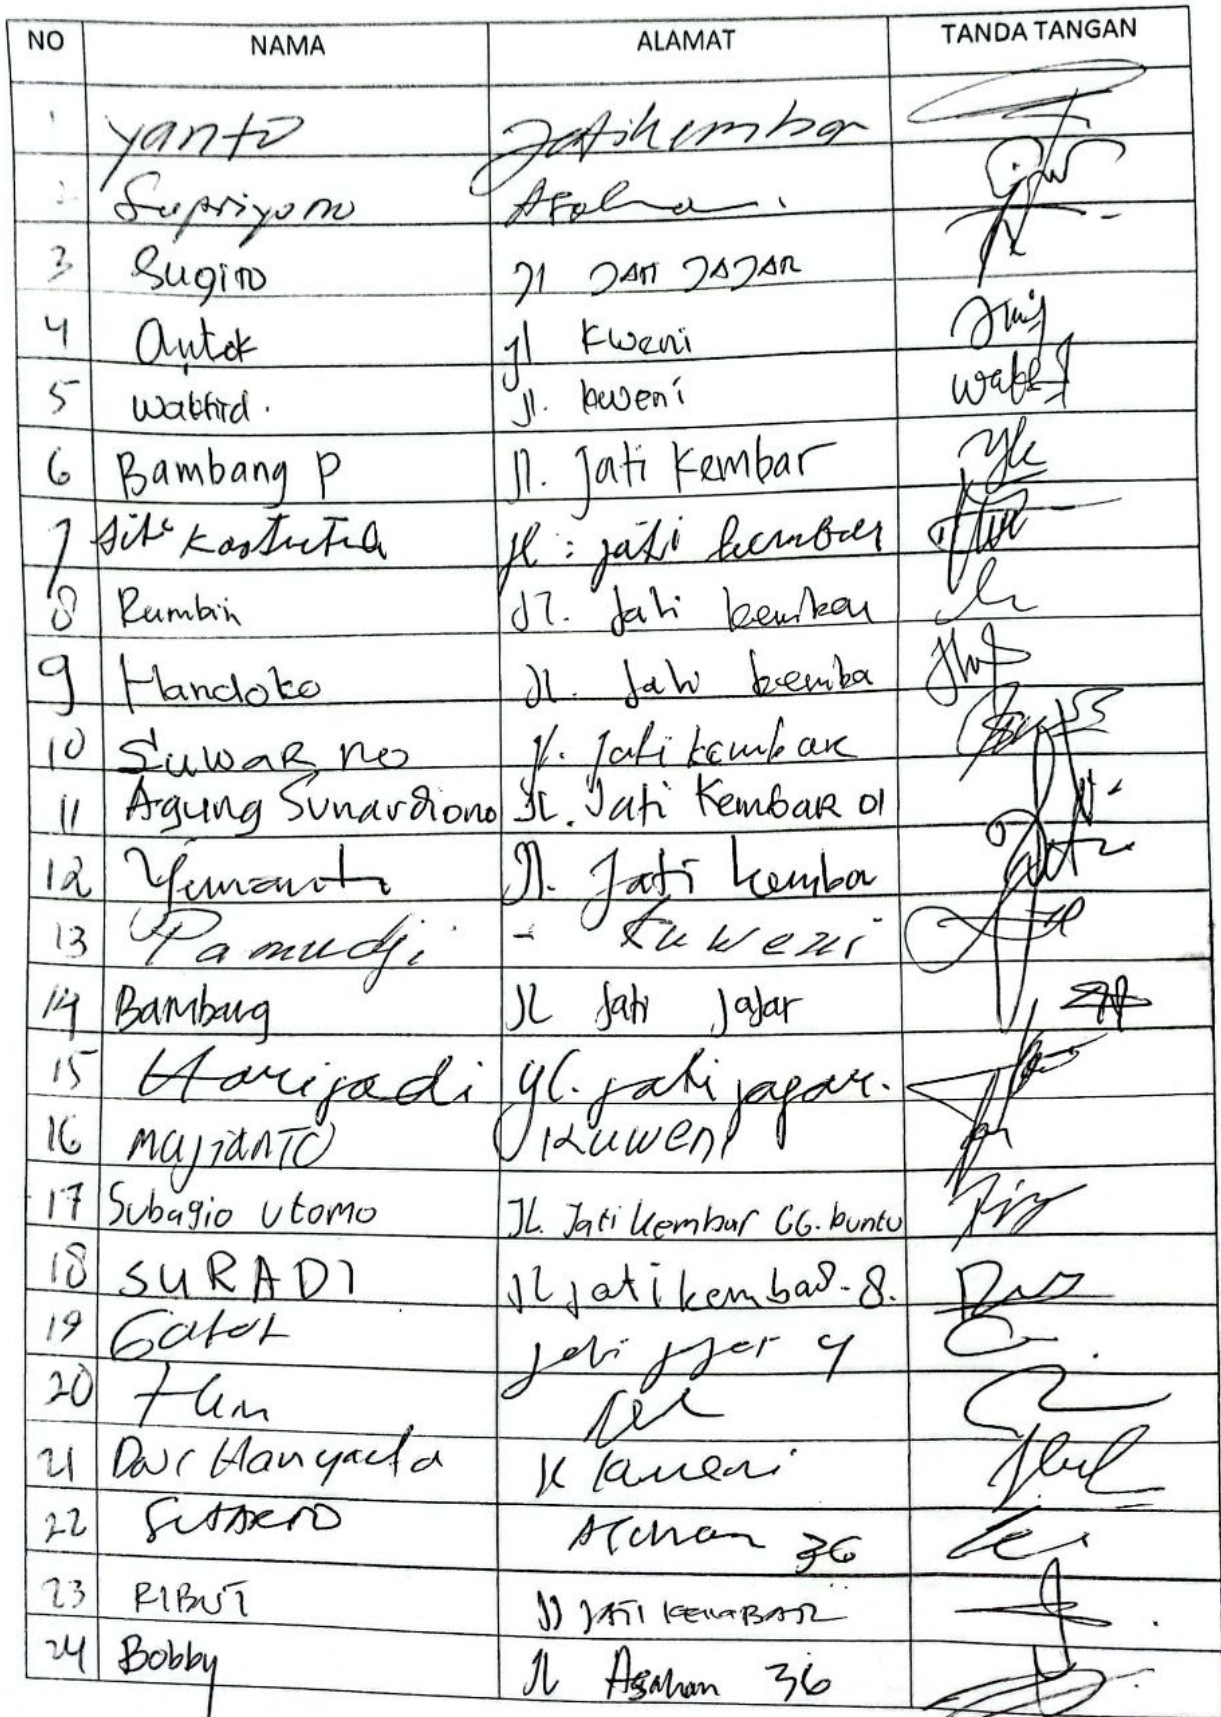 NO NAMA ALAMAT TANDA TANGAN
1 Yanto Jatikembar
2 Supriyono Asahan.
3 Sugito Jl JATI JAJAR
4 Antok Jl Kweni
5 Wakhid. Jl. kweni
6 Bambang P Jl. Jati Kembar
7 Siti Jl : jati kembar
8 Rumbin Jl. Jati kembar
9 Handoko Jl. Jati kemba
10 SuwaR no Jl. Jati kembar
11 Agung Sunardiono JL. Jati KembaR 01
12 Yunianto Jl. Jati kembar
13 Pamudji - Kuweni
14 Bambang JL Jati Jajar
15 Harijadi Jl. jati jajar.
16 MUJIANTO KUWENI
17 Subagio Utomo JL. Jati Kembar GG. buntu
18 SURADI Jl jati kembar. 8.
19 Gatot jati jajar 4
20
21 Kuweni
22 Asahan 36
23 RIBUT Jl JATI KEMBAR
24 Bobby Jl Asahan 36